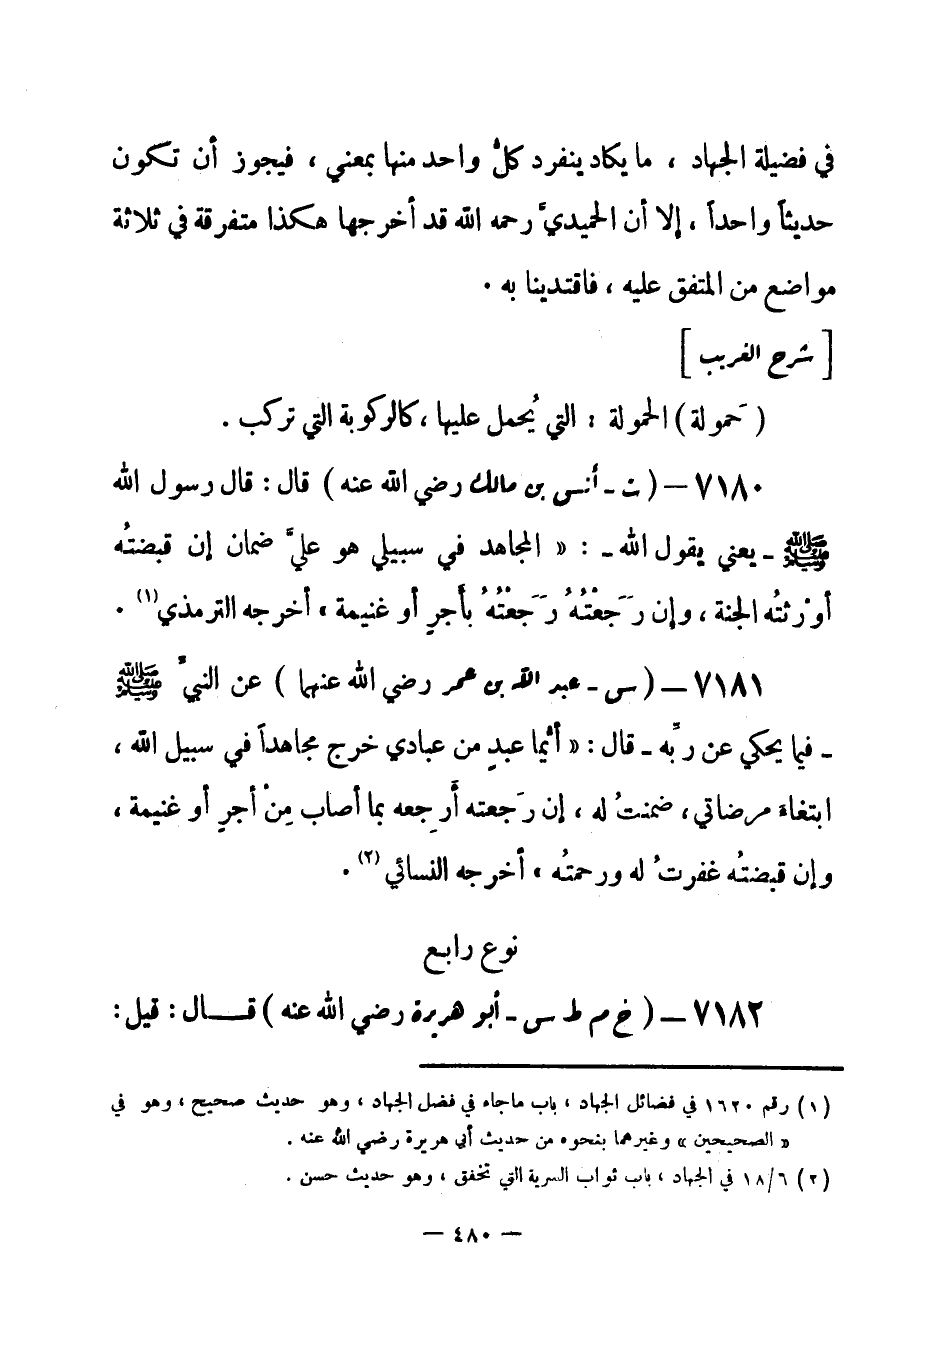 في فضيلة الجهاد ، ما يكاد ينفرد كلُّ واحد منها بمعني ، فيجوز أن تكون
حديثاً واحداً ، إلا أن الحميديَّ رحمه الله قد أخرجها هكذا متفرقة في ثلاثة
مواضع من المتفق عليه ، فاقتدينا به .
[ شرح الغريب ]
( حَمولة ) الحمولة : التي يُحمل عليها ، كالركوبة التي تركب .
٧١٨٠ – ( ت - أنس بن مالك رضي الله عنه ) قال : قال رسول الله
ﷺ - يعني يقول الله - : « المجاهد في سبيلي هو عليَّ ضمان إن قبضتُه
أوْرثتُه الجنة ، وإن رَجَعْتُهُ رَجَعْتُهُ بأجرٍ أو غنيمة » أخرجه الترمذي (١) .
٧١٨١ – ( س - عبد الله بن عمر رضي الله عنهما ) عن النبيِّ ﷺ
- فيما يحكي عن ربِّه - قال : « أيُّما عبدٍ من عبادي خرج مجاهداً في سبيل الله ،
ابتغاءَ مرضاتي ، ضمنتُ له ، إن رَجعته أَرجِعه بما أصاب مِنْ أجرٍ أو غنيمة ،
وإن قبضتُه غفرتُ له ورحمتُه » أخرجه النسائي (٢) .
نوع رابع
٧١٨٢ – ( خ م ط س - أبو هريرة رضي الله عنه ) قــال : قيل :
(١) رقم ١٦٢٠ في فضائل الجهاد ، باب ماجاء في فضل الجهاد ، وهو حديث صحيح ، وهو في
« الصحيحين » وغيرهما بنحوه من حديث أبي هريرة رضي الله عنه .
(٢) ١٨/٦ في الجهاد ، باب ثواب السرية التي تخفق ، وهو حديث حسن .
– ٤٨٠ –